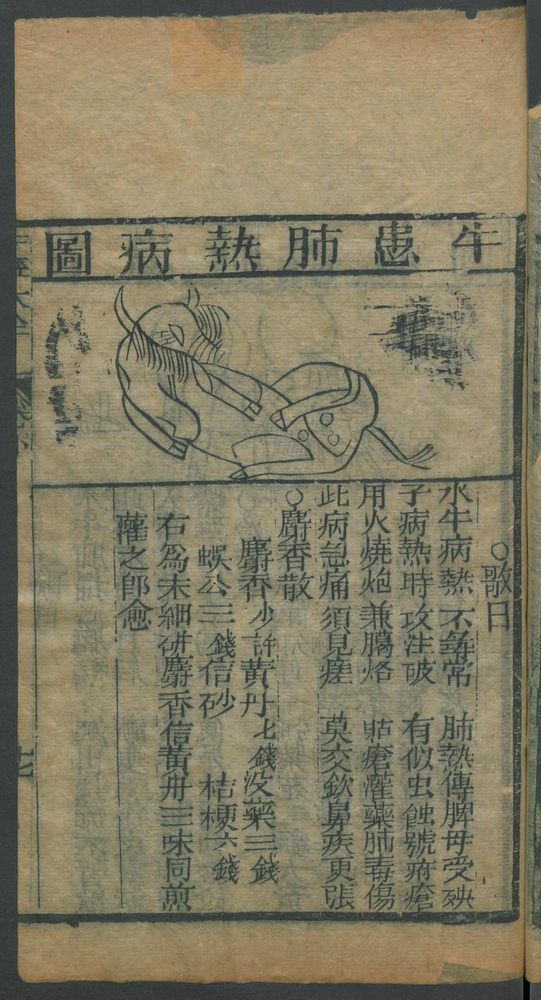 牛患肺熱病圖
○歌曰
水牛病熱不尋常 肺熱傳脾母受殃
子病熱時攻注破 有似虫蝕號疳瘡
用火燒炮兼腸烙 貼瘡灌藥肺毒傷
此病急痛須見瘥 莫交飲鼻疾更張
○麝香散
麝香少許黃丹七錢沒藥三錢
蜈公三錢信砂 桔梗六錢
右為末細研麝香信黃丹三味同煎
灌之即愈